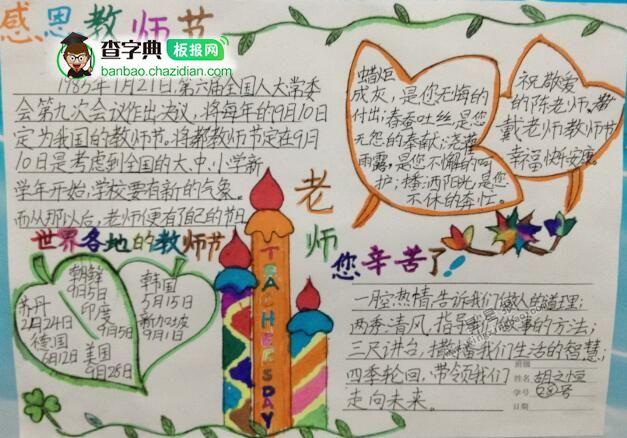 感恩教师节
查字典 板报网
banbao.chazidian.com
1985年1月21日,第六届全国人大常委
会第九次会议作出决议,将每年的9月10日
定为我国的教师节。将教师节定在9月
10日是考虑到全国的大、中、小学新
学年开始,学校要有新的气象。
而从那以后,老师便有了自己的节日
世界各地的教师节
朝鲜
9月5日
印度
9月5日
苏丹
2月24日
德国
6月12日
美国
9月28日
韩国
5月15日
新加坡
9月1日
TEACHERSDAY
蜡炬
成灰,是您无悔的
付出;春蚕吐丝是您
无怨的奉献;浇灌
雨露,是您不懈的呵
护;播洒阳光,是您
不休的奔忙。
祝敬爱
的陈老师、
戴老师教师节
幸福快乐安康
老师
您辛苦了!
一腔热情,告诉我们做人的道理;
两季清风,指导我们做事的方法;
三尺讲台,撒播我们生活的智慧;
四季轮回,带领我们
走向未来。
班级
姓名 胡之恒
学号
日期